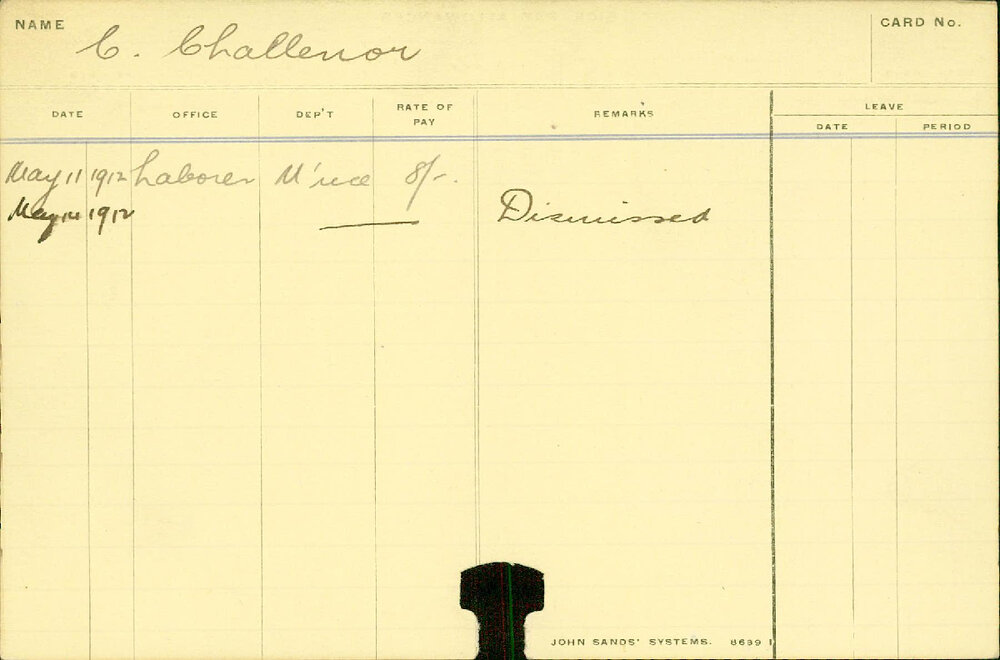 NAME C. Challenor CARD No.
DATE OFFICE DEP'T RATE OF PAY REMARKS LEAVE
DATE PERIOD
May 11 1912 Laborer M'nce 8/-.
May 14 1912 — Dismissed
JOHN SANDS' SYSTEMS. 8699